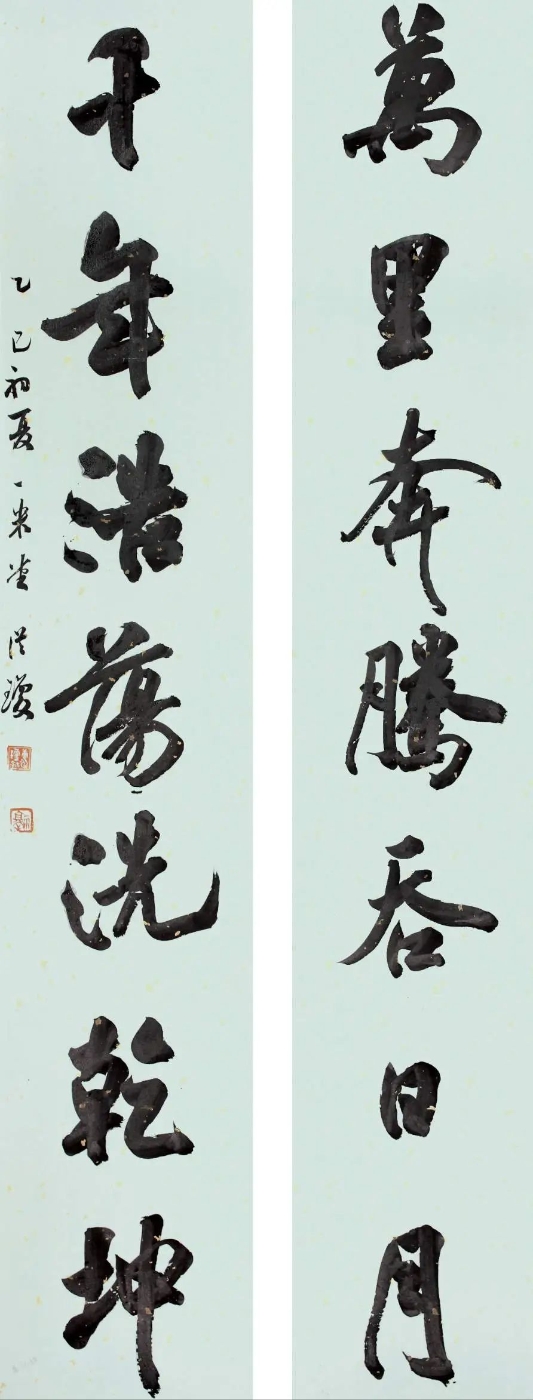 萬里奔騰吞日月
千年浩蕩洗乾坤
乙巳初夏一米堂洪瓊